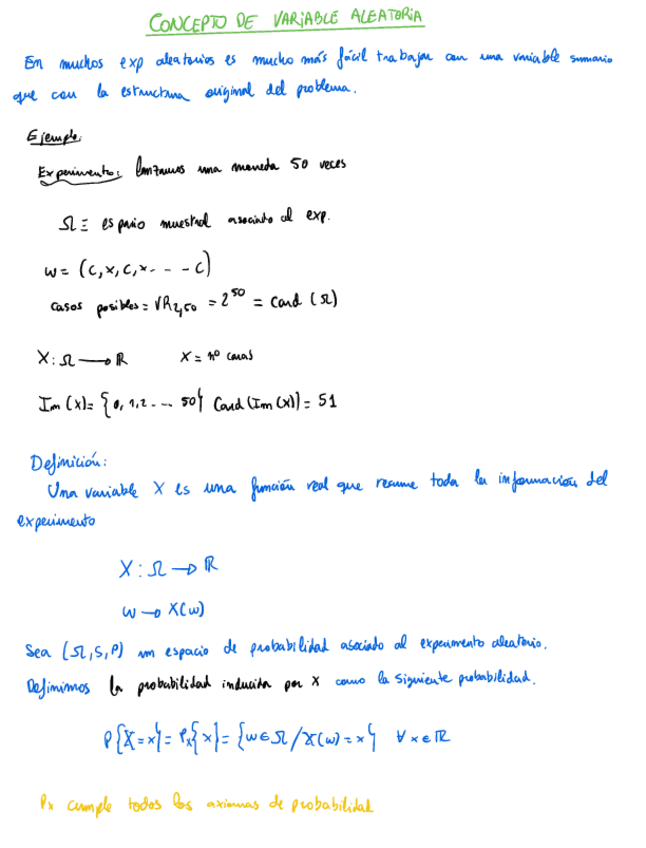 CONCEPTO DE VARIABLE ALEATORIA
En muchos exp aleatorios es mucho más fácil trabajar con una variable sumario
que con la estructura original del problema.
Ejemplo:
Experimento: lanzamos una moneda 50 veces
Ω ≡ espacio muestral asociado al exp.
w = (C, X, C, X - - - C)
casos posibles = VR2,50 = 2^50 = Card (Ω)
X: Ω → ℝ X = nº caras
Im (X) = {0, 1, 2 - - ... 50} Card (Im (X)) = 51
Definición:
Una variable X es una función real que resume toda la información del
experimento
X : Ω → ℝ
w → X(w)
Sea (Ω, S, P) un espacio de probabilidad asociado al experimento aleatorio.
Definimos la probabilidad inducida por X como la siguiente probabilidad.
P{X = x} = Px{x} = {w ∈ Ω / X(w) = x} ∀ x ∈ ℝ
Px cumple todos los axiomas de probabilidad